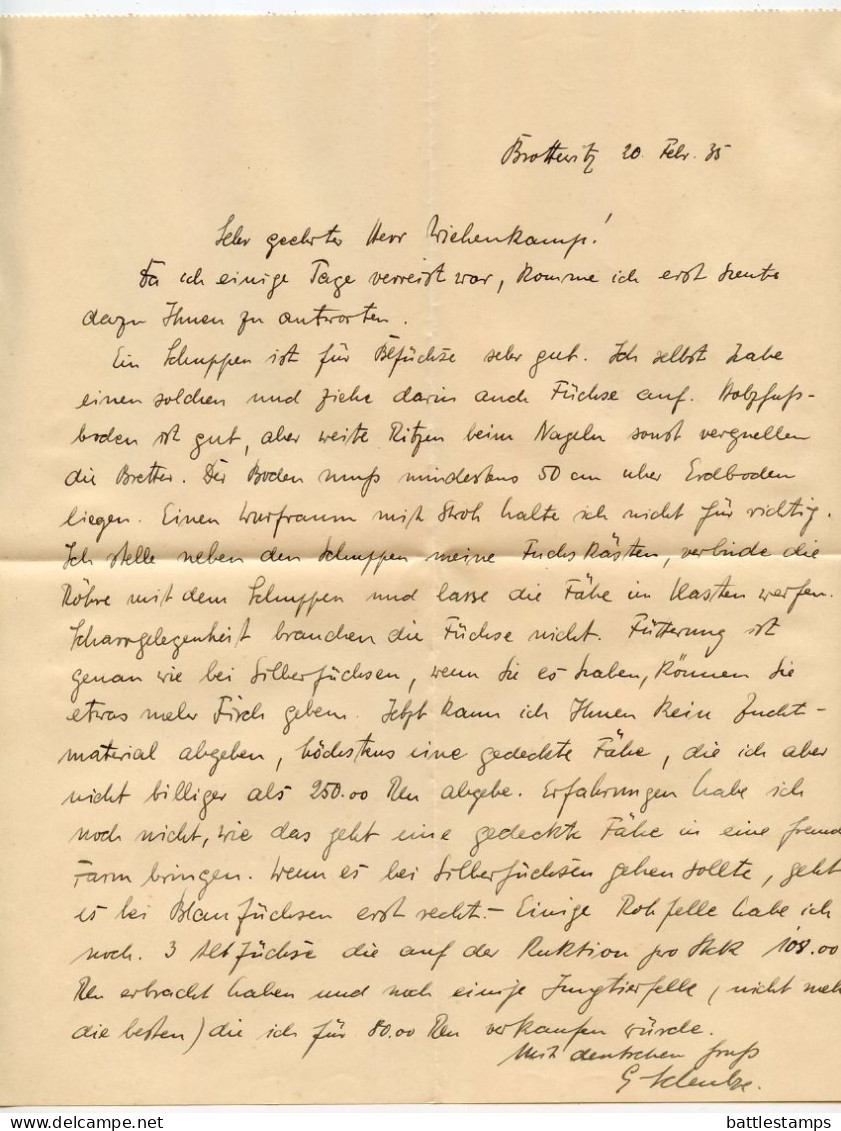 Brottewitz 20. Febr. 35
Sehr geehrter Herr Wiehenkamp!
Da ich einige Tage verreist war, komme ich erst heute
dazu Ihnen zu antworten.
Ein Schuppen ist für Blfüchse sehr gut. Ich selbst habe
einen solchen und ziehe darin auch Füchse auf. Holzfuß-
boden ist gut, aber weite Ritzen beim Nageln sonst verquellen
die Bretter. Der Boden muß mindestens 50 cm über Erdboden
liegen. Einen Wurfraum mit Stroh halte ich nicht für richtig.
Ich stelle neben den Schuppen meine Fuchskästen, verbinde die
Röhre mit dem Schuppen und lasse die Fähe im Kasten werfen.
Scharrgelegenheit brauchen die Füchse nicht. Fütterung ist
genau wie bei Silberfüchsen, wenn Sie es haben, können Sie
etwas mehr Fisch geben. Jetzt kann ich Ihnen kein Zucht-
material abgeben, höchstens eine gedeckte Fähe, die ich aber
nicht billiger als 250.00 Rm abgebe. Erfahrungen habe ich
noch nicht, wie das geht eine gedeckte Fähe in eine fremd
Farm bringen. Wenn es bei Silberfüchsen gehen sollte, geht
es bei Blaufüchsen erst recht.- Einige Rohfelle habe ich
noch. 3 Altfüchse die auf der Auktion pro Stck 108.00
Rm erbracht haben und noch einige Jungtierfelle (nicht meh
die besten) die ich für 80.00 Rm verkaufen würde.
Mit deutschem Gruß
G
battlestamps